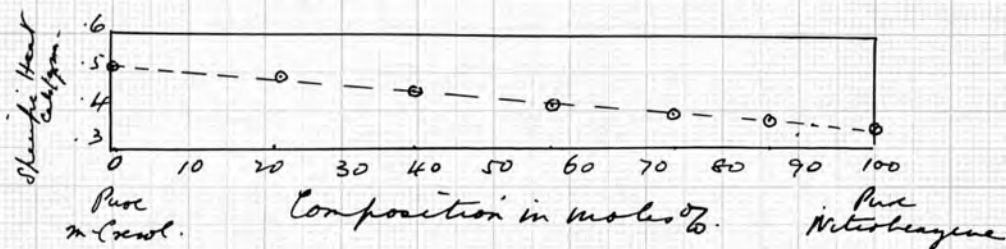 .6
.5
.4
.3
Specific Heat
cals/gm.
0 10 20 30 40 50 60 70 80 90 100
Pure
m-Cresol.
Composition in moles %.
Pure
Nitrobenzene